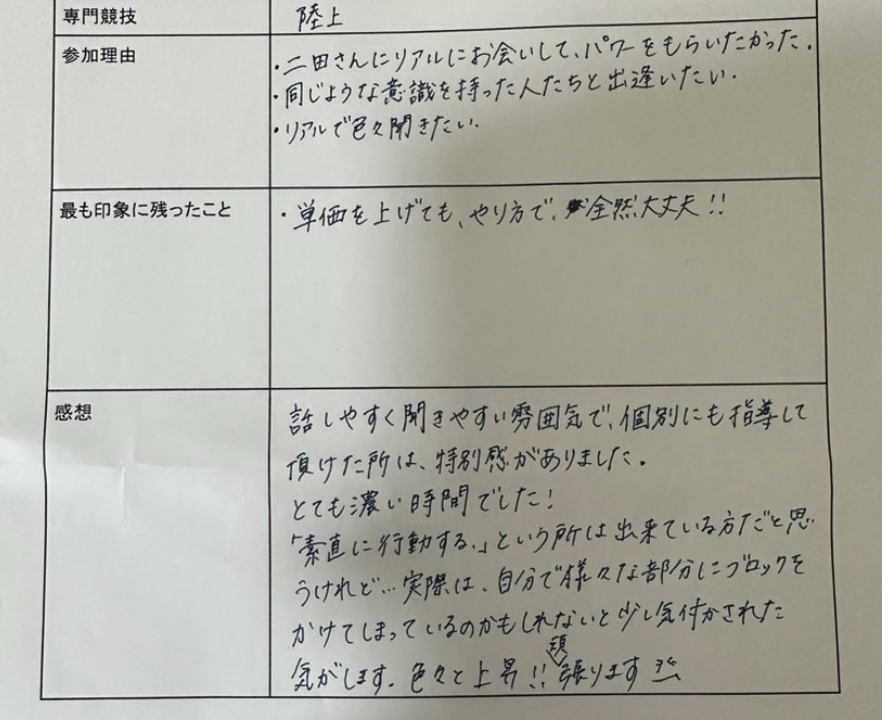 専門競技
陸上
参加理由
・二田さんにリアルにお会いして、パワーをもらいたかった。
・同じような意識を持った人たちと出逢いたい。
・リアルで色々聞きたい。
最も印象に残ったこと
・単価を上げても、やり方で、全然大丈夫!!
感想
話しやすく聞きやすい雰囲気で、個別にも指導して
頂けた所は、特別感がありました。
とても濃い時間でした!
「素直に行動する。」という所は出来ている方だと思
うけれど…実際は、自分で様々な部分にブロックを
かけてしまっているのかもしれないと少し気付かされた
気がします。色々と上昇!!頑張ります